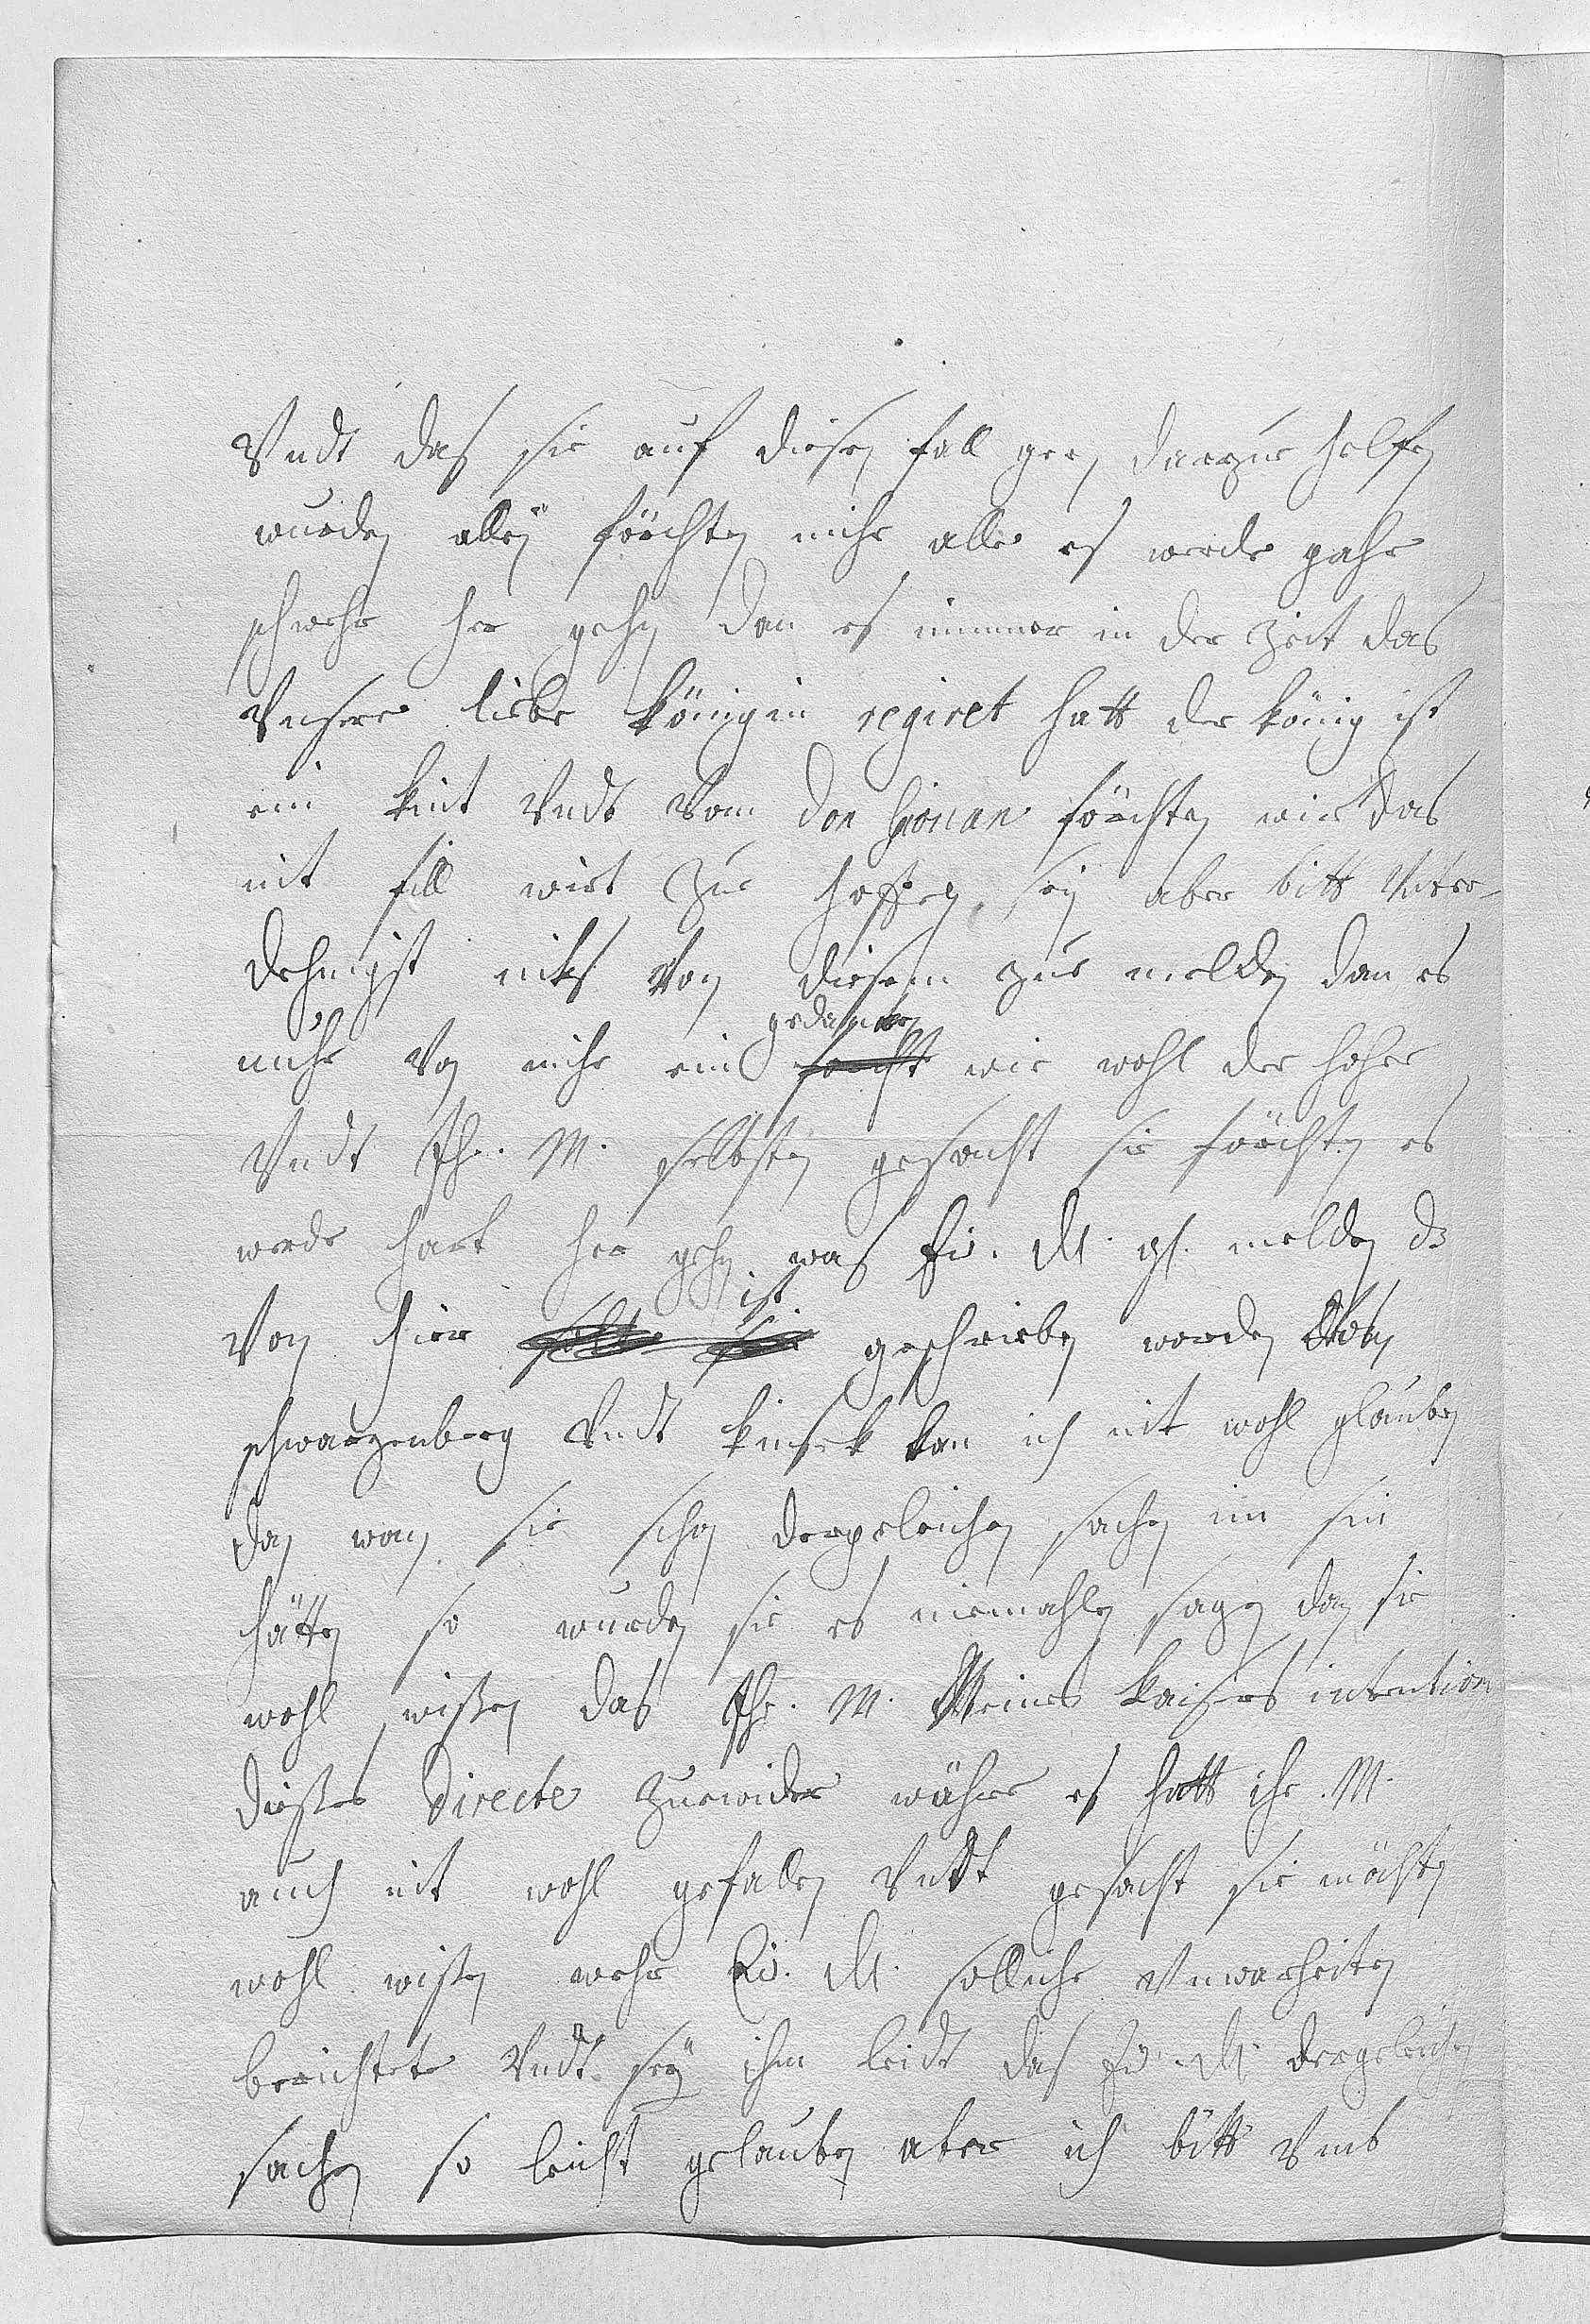 Vndt das sie auf diesen fall gern darzue helfen
wurden allein förchten mihr alle es werde gahr
schwehr her gehen dan es nimmer in der zeit das
Vnsere liebe königin regiret hatt der könig ist
ein kint Vndt Vom Don Jiouan förchten wir das
nit fill wirt zue hoffen sein aber bitt Vnter-
dehnigst nihts Von diesem zue melden dan es
nuhr Von mihr ein gedancken wie wohl der hoher
Vndt Ihr. M. selbsten gesacht sie förchten es
werde hart her gehen was Eü. M. gl. melden dz
Von hier ist geschrieben worden
schwarzenberg Vndt kinsek kan ich nit wohl glauben
dan wan sie schon dergeleichen sachen im sin
hätten so wurden sie es niemahlen sagen dan sie
wohl wißen das Ihr. M. Meines kaisers intention
dießes directe zuewider währe es hatt ihr. M.
auch nit wohl gefallen Vndt gesacht sie möchten
wohl wißen wehr Eü. M. solliche Vnwarheiten
berichtete Vndt seÿ ihm leidt das Eü. M. dergeleichen
sachen so leicht gelauben aber ich bitt Vmb